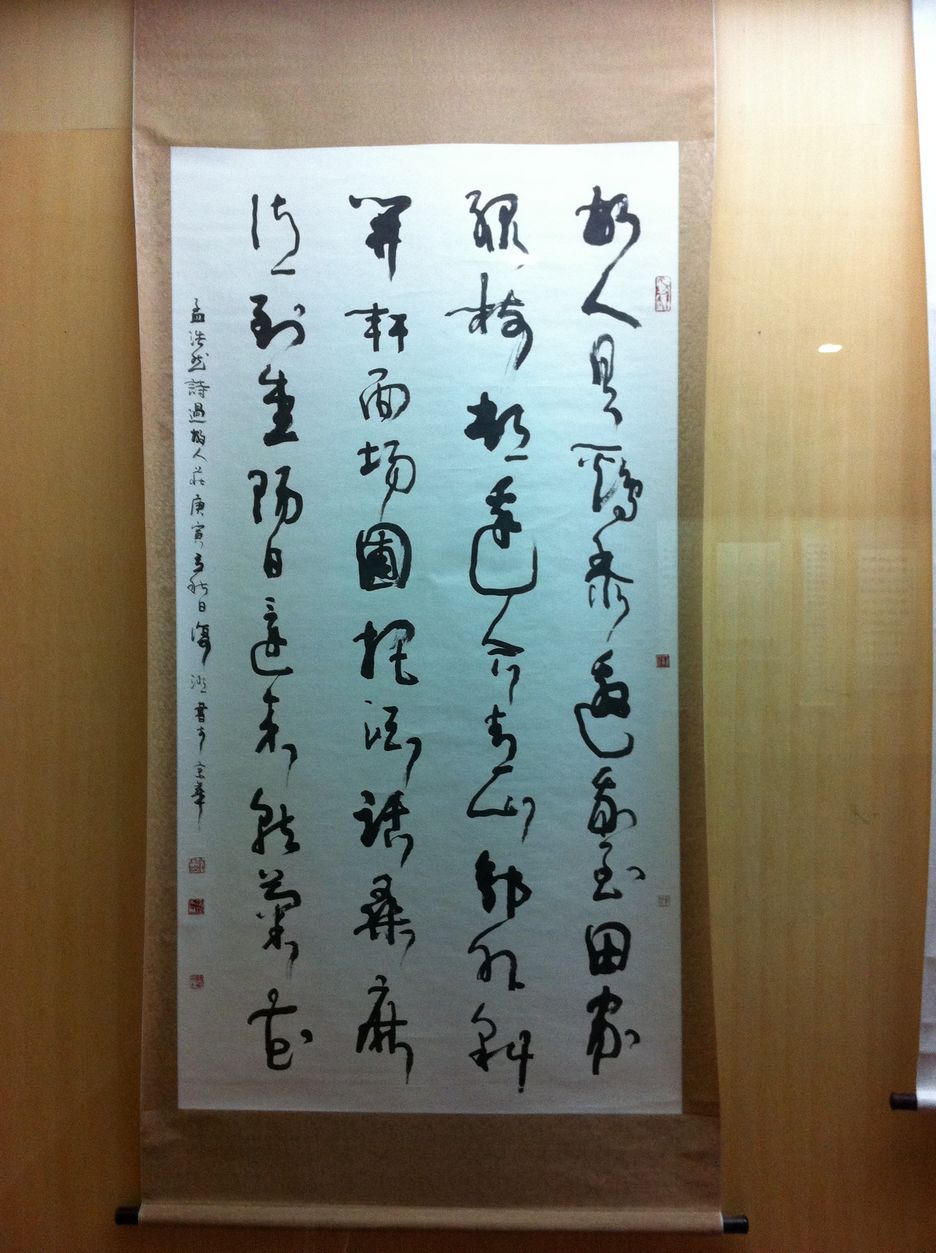 故人具鷄黍邀我至田家
綠樹村邊合青山郭外斜
開軒面場圃把酒話桑麻
待到重陽日還來就菊花
孟浩然詩過故人莊庚寅立秋日書於京華